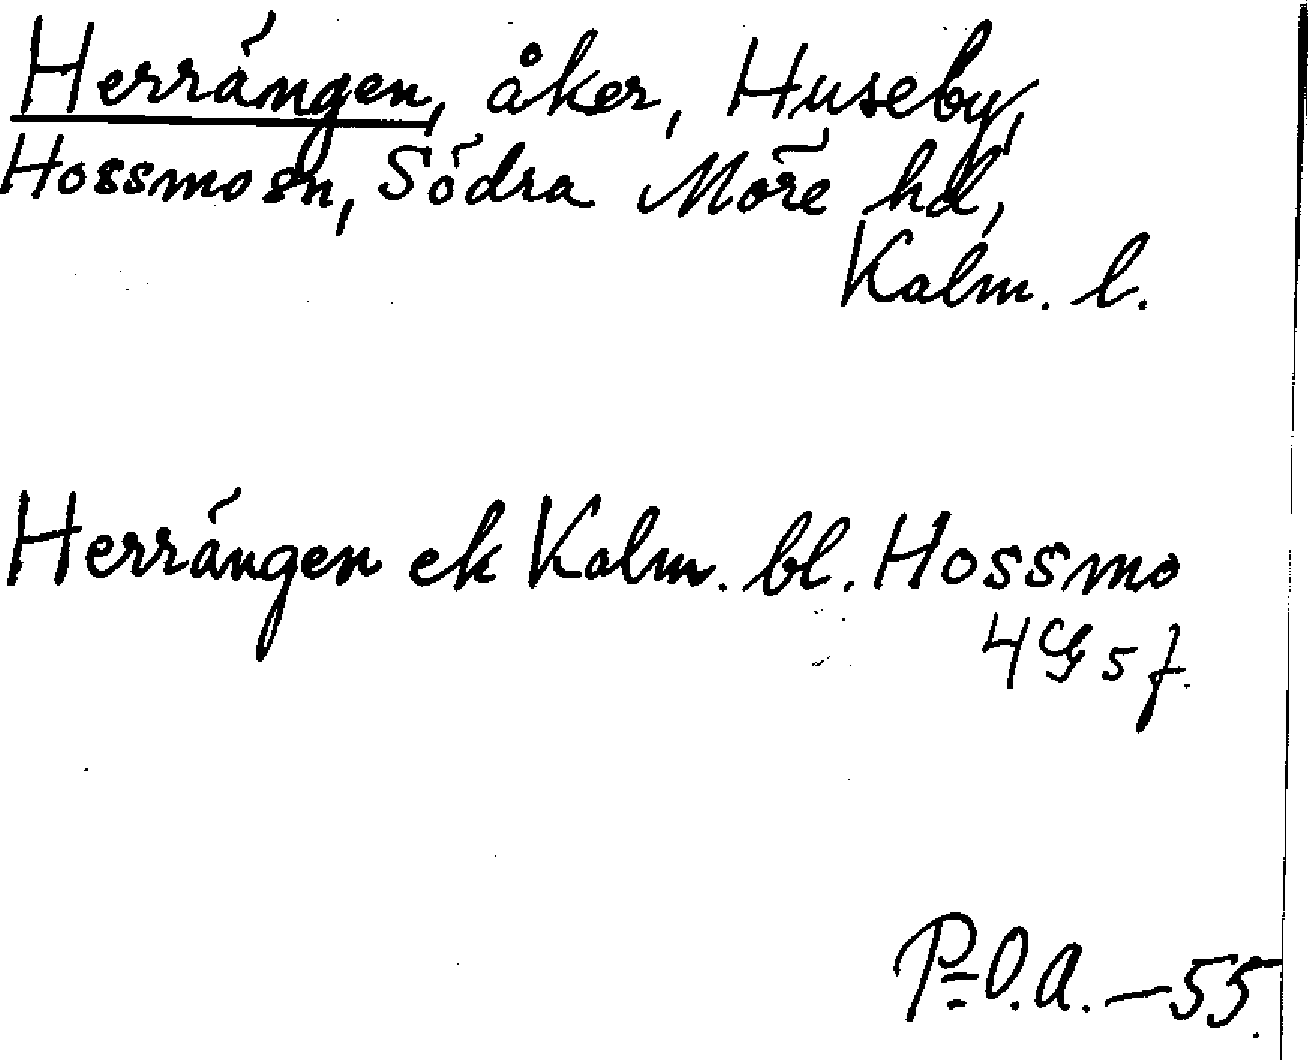 Herrängen, åker, Huseby,
Hossmo sn, Södra Möre hd,
Kalm. l.
Herrängen ek Kalm. bl. Hossmo
4G5f.
P-O.A. – 55.